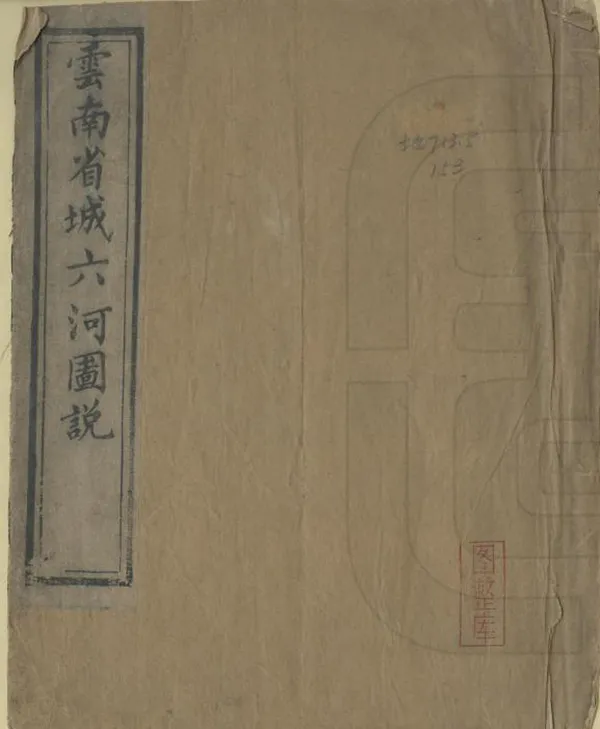 雲南省城六河圖說
地715.5
153